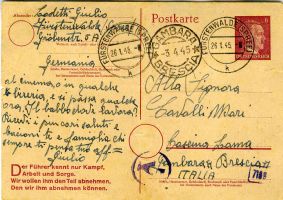 Postkarte
Absender: Codetti Giulio
Fürstenwalde
Germania
al cinema, o in qualche
birreria, e si passa qualche
ora. Il babbo dove lavora?
Ricevi i più cari saluti e
bacioni te e famiglia chi
sempre ti pensa tuo aff.
Giulio
Der Führer kennt nur Kampf,
Arbeit und Sorge.
Wir wollen ihm den Teil abnehmen,
Den wir ihm abnehmen können.
FÜRSTENWALDE (SPREE)
26.1.45
GAMBARA
BRESCIA
3.4.45
FÜRSTENWALDE (SPREE)
26.1.45
6
Alla Signora
Cavalli Mare
Caserma Zama
Gambara Brescia
ITALIA
A